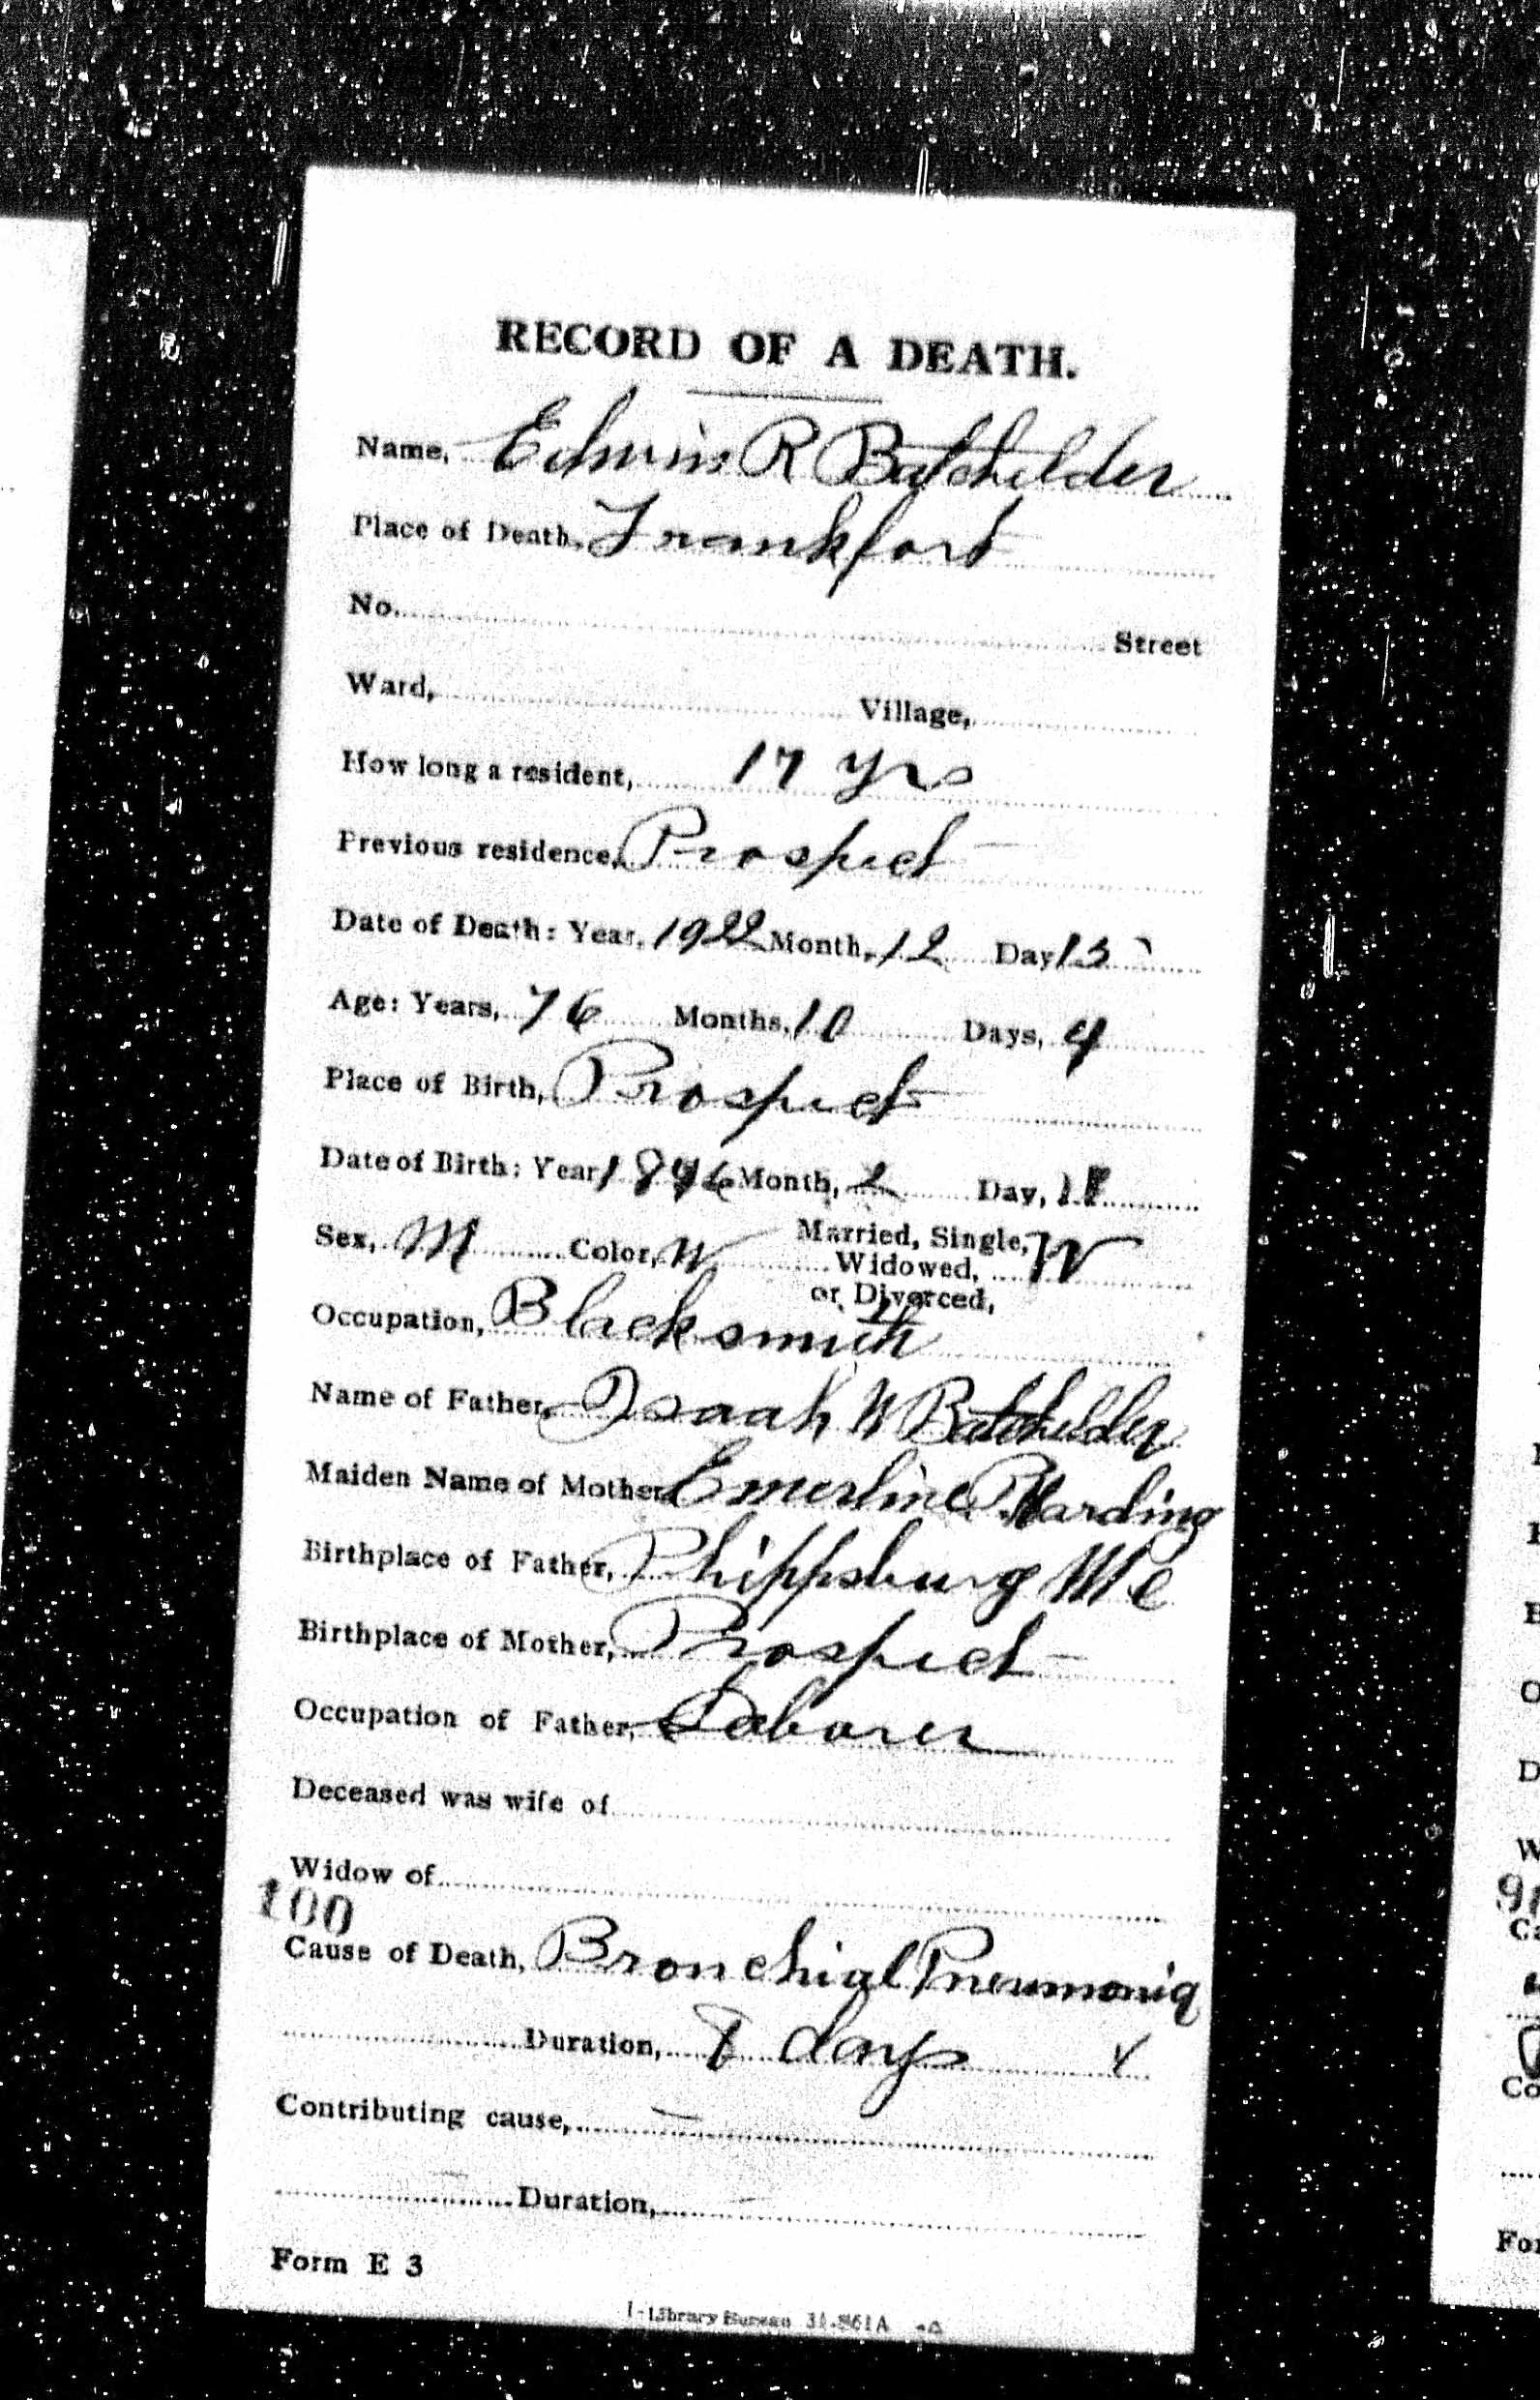 RECORD OF A DEATH.
Name, Edwin R Batchelder
Place of Death, Frankfort
No. Street
Ward, Village,
How long a resident, 17 yrs
Previous residence, Prospect
Date of Death: Year, 1922 Month, 12 Day 15
Age: Years, 76 Months, 10 Days, 4
Place of Birth, Prospect
Date of Birth: Year 1846 Month, 2 Day, 11
Sex, M Color, W Married, Single, W
Widowed,
or Divorced,
Occupation, Blacksmith
Name of Father, Isaah W Batchelder
Maiden Name of Mother Emerline Harding
Birthplace of Father, Phippsburg Me
Birthplace of Mother, Prospect
Occupation of Father, Laborer
Deceased was wife of
Widow of
100
Cause of Death, Bronchial Pneumonia
Duration, 8 days
Contributing cause, —
Duration,
Form E 3
Library Bureau